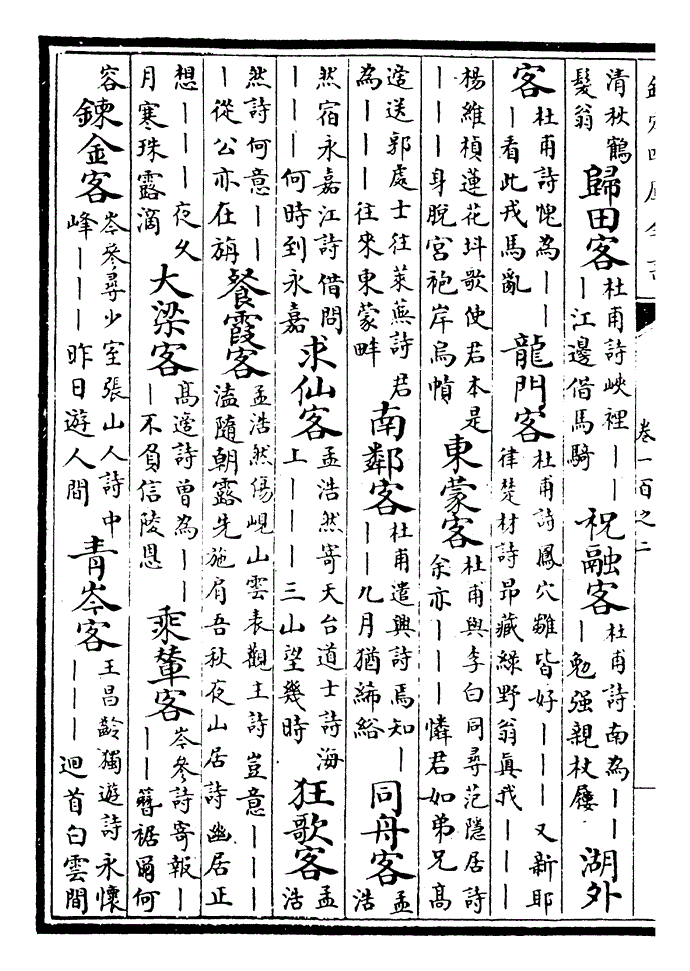 欽定四庫全書
卷一百之二
清秋鶴
髮翁
歸田客
杜甫詩峽裡｜｜
｜江邊借馬騎
祝融客
杜甫詩南為｜｜
｜勉强親杖屨
湖外
客
杜甫詩愧為｜｜
｜看此戎馬亂
龍門客
杜甫詩鳳穴雛皆好｜｜｜又新耶
律楚材詩昂藏綠野翁真我｜｜｜
楊維楨蓮花炓歌使君本是
｜｜｜身脫宮袍岸烏幘
東蒙客
杜甫與李白同尋范隱居詩
余亦｜｜｜憐君如弟兄高
适送郭處士往萊蕪詩君
為｜｜｜往來東蒙畔
南鄰客
杜甫遣興詩焉知｜
｜｜九月猶絺綌
同舟客
孟
浩
然宿永嘉江詩借問
｜｜｜何時到永嘉
求仙客
孟浩然寄天台道士詩海
上｜｜｜三山望幾時
狂歌客
孟
浩
然詩何意｜｜
｜從公亦在旃
餐霞客
孟浩然傷峴山雲表觀主詩豈意｜｜｜
溘隨朝露先施肩吾秋夜山居詩幽居正
想｜｜｜夜久
月寒珠露滴
大梁客
高适詩曾為｜｜
｜不負信陵恩
乘輦客
岑參詩寄報｜
｜｜簪裾爾何
容
鍊金客
岑參尋少室張山人詩中
峰｜｜｜昨日遊人間
青岑客
王昌齡獨遊詩永懷
｜｜｜迴首白雲間